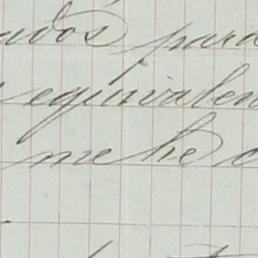 ados para
equivalen
me he